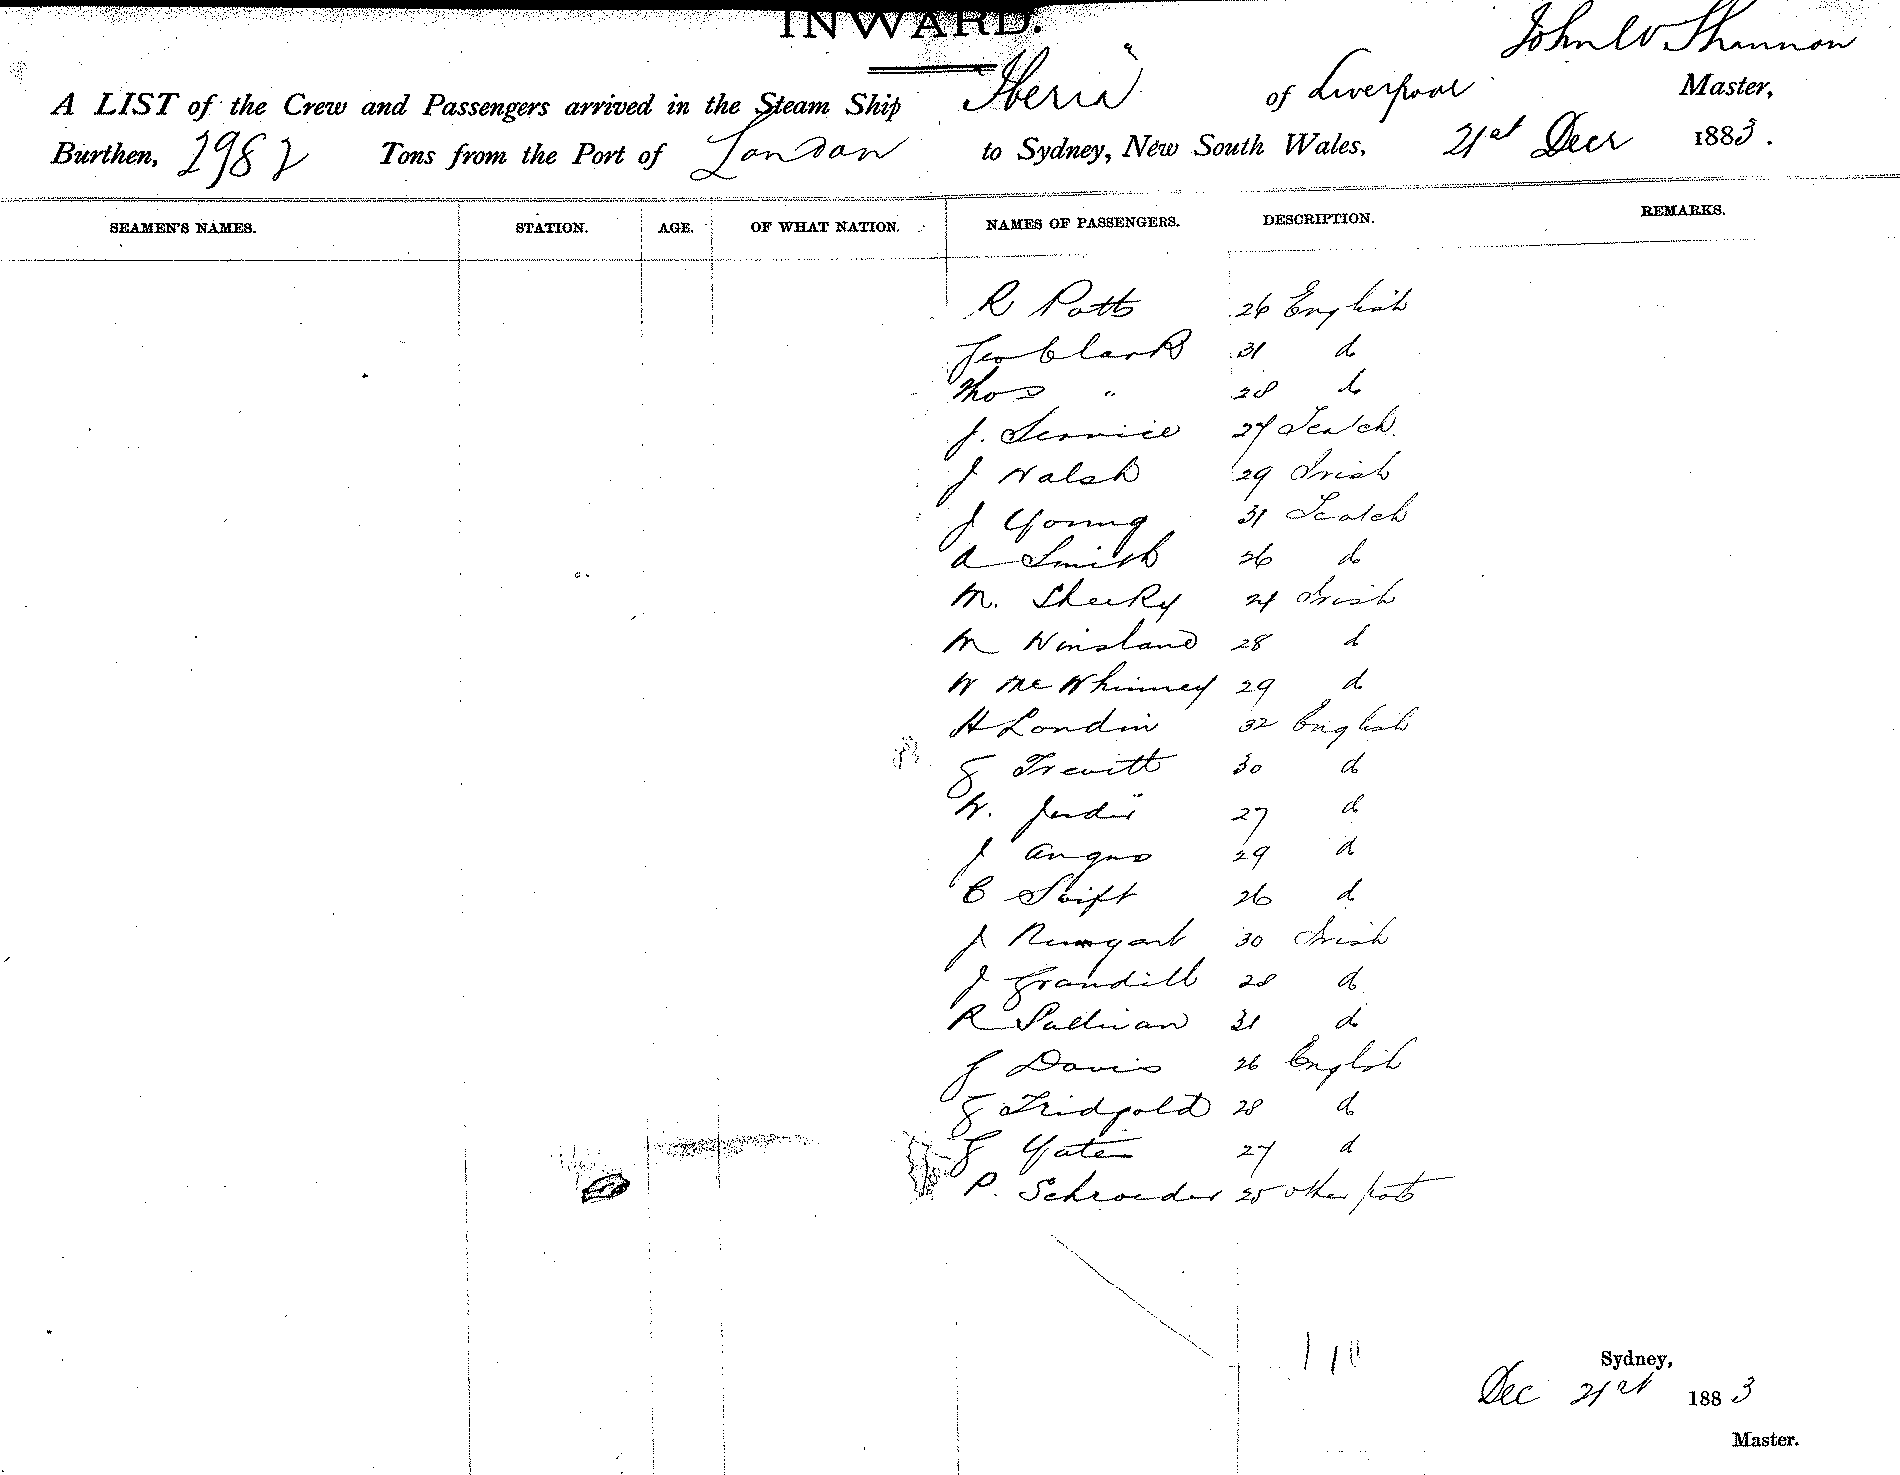 INWARD.
John W Shannon
A LIST of the Crew and Passengers arrived in the Steam Ship "Iberia" of Liverpool Master,
Burthen, 2982 Tons from the Port of London to Sydney, New South Wales, 21st Decr 1883.
SEAMEN'S NAMES. STATION. AGE. OF WHAT NATION. NAMES OF PASSENGERS. DESCRIPTION. REMARKS.
R Potts 26 English
Geo Clark 31 do
Thos " 28 do
J. Service 27 Scotch.
J Walsh 29 Irish
J Young 31 Scotch
A Smith 26 do
M. Sheeky 24 Irish
M Winsland 28 d
W McWhinney 29 do
H London 32 English
G Trewitt 30 d
W. 27 d
J Angus 29 d
C Swift 26 d
J 30 Irish
J Grandill 28 do
R Sullivan 31 do
J Davis 26 English
G Tridgold 28 do
G Yates 27 d
P. Schroeder 25 other parts
Sydney,
Dec 21st 1883
Master.